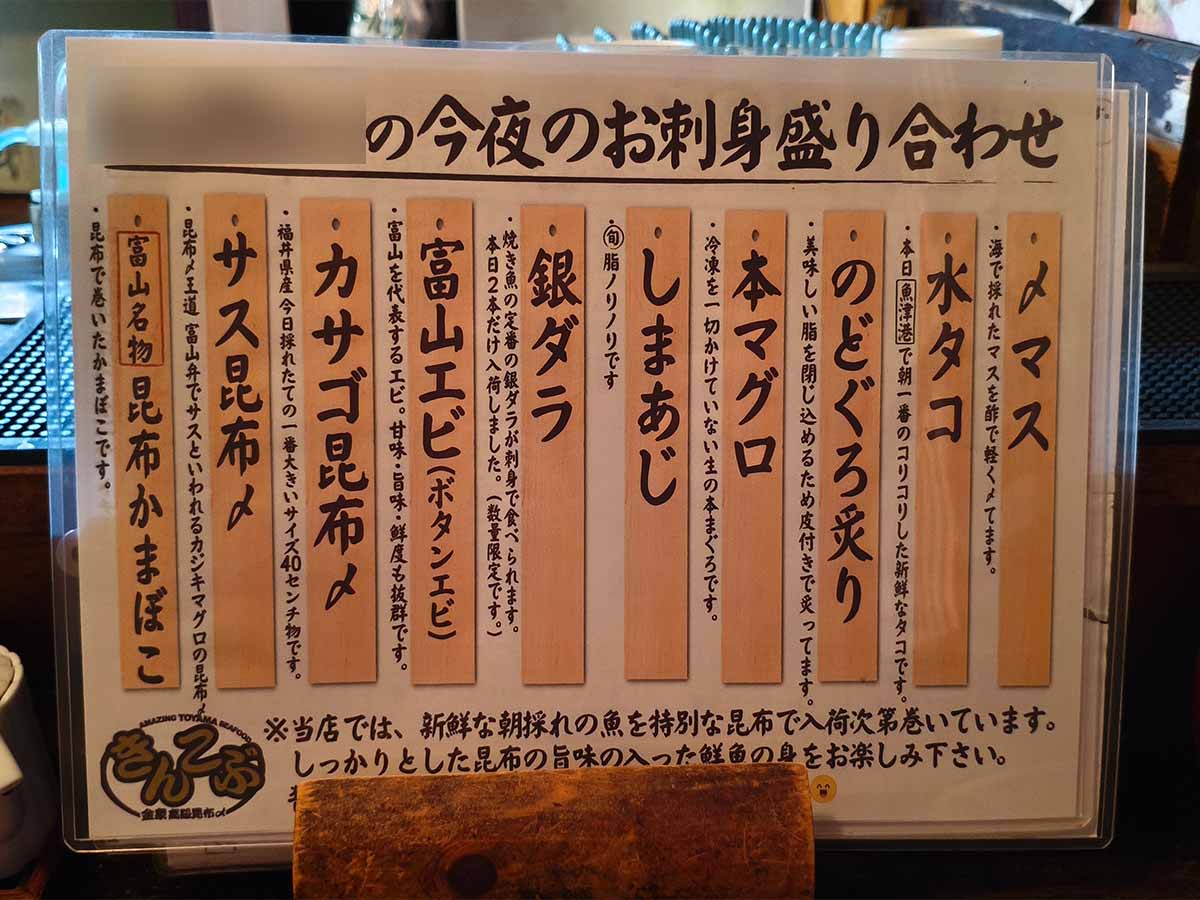 の今夜のお刺身盛り合わせ
〆マス
・海で採れたマスを酢で軽く〆てます。
水タコ
・本日魚津港で朝一番のコリコリした新鮮なタコです。
のどぐろ炙り
・美味しい脂を閉じ込めるため皮付きで炙ってます。
本マグロ
・冷凍を一切かけていない生の本まぐろです。
しまあじ
・旬脂ノリノリです
銀ダラ
・焼き魚の定番の銀ダラが刺身で食べられます。
本日2本だけ入荷しました。(数量限定です。)
富山エビ(ボタンエビ)
・富山を代表するエビ。甘味・旨味・鮮度も抜群です。
カサゴ昆布〆
・福井県産 今日採れたての一番大きいサイズ40センチ物です。
サス昆布〆
・昆布〆王道 富山弁でサスといわれるカジキマグロの昆布〆
富山名物 昆布かまぼこ
・昆布で巻いたかまぼこです。
※当店では、新鮮な朝採れの魚を特別な昆布で入荷次第巻いています。
しっかりとした昆布の旨味の入った鮮魚の身をお楽しみ下さい。
AMAZING TOYAMA SEAFOODS
きんこぶ